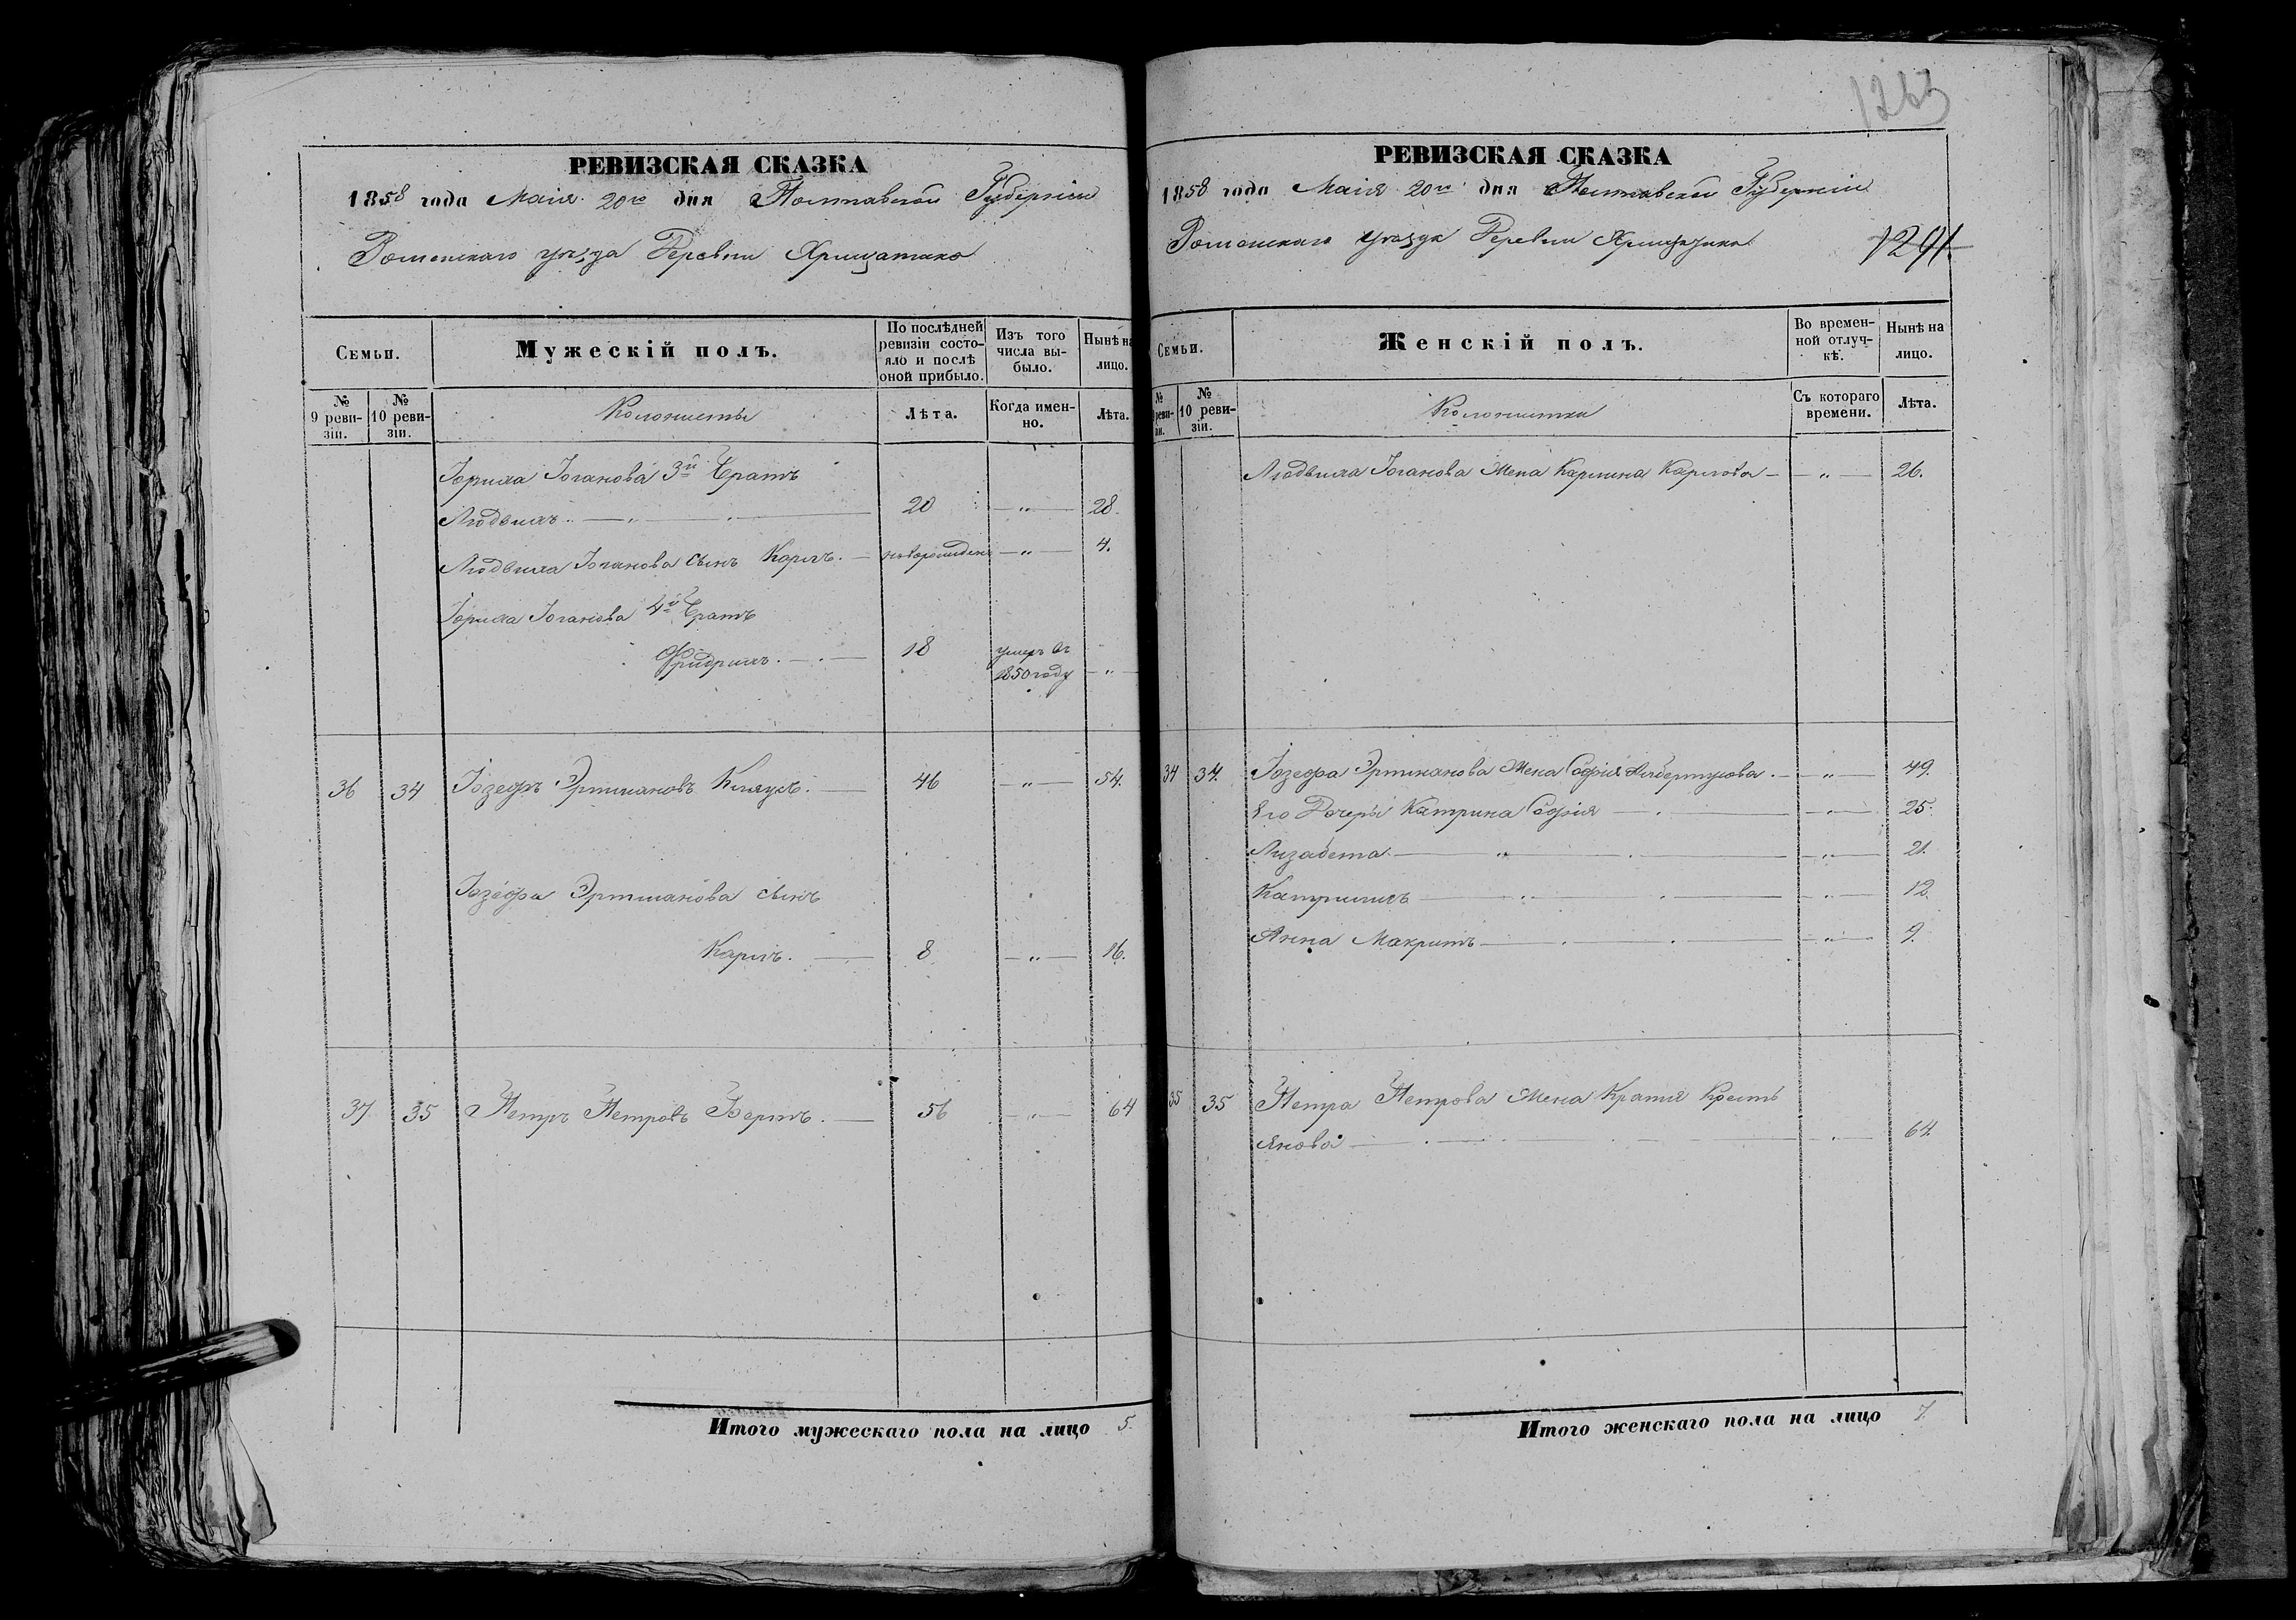 РЕВИЗСКАЯ СКАЗКА
1858 года Маія 20го дня Полтавской Губерніи
Роменскаго уѣзда Деревни
Семьи.
Мужескій полъ.
По послѣдней ревизіи состояло и послѣ оной прибыло.
Изъ того числа выбыло.
Нынѣ на лицо.
№ 9 ревизіи.
№ 10 ревизіи.
Колонисты
Лѣта.
Когда именно.
Лѣта.
Іоганова 3й братъ
Людвихъ. — 20 — „ — 28.
Людвиха Іоганова сынъ Карлъ. — новорожден — „ — 4.
Іоганова 4й братъ
Фридрихъ. — 18 умеръ въ
1850 году — „ —
36 34 Іозефъ Эртмановъ — 46 — „ — 54.
Іозефа Эртманова сынъ
Карлъ. — 8 — „ — 16.
37 35 Петръ Петровъ Бертъ. — 56 — „ — 64
Итого мужескаго пола на лицо 5.
1263
РЕВИЗСКАЯ СКАЗКА
1858 года Маія 20го дня Полтавской Губерніи
Роменскаго уѣзда Деревни
1291.
Семьи.
Женскій полъ.
Во временной отлучкѣ.
Нынѣ на лицо.
№ ревизіи.
№ 10 ревизіи.
Колонистки
Съ котораго времени.
Лѣта.
Людвиха Іоганова жена Карлина Карлова — „ — 26.
34 34. Іозефа Эртманова жена Софія — „ — 49.
Его Дочери Катрина Софія — „ — 25.
Лизабета — „ — 21.
— „ — 12.
Анна Макритъ — „ — 9.
35 35 Петра Петрова жена
янова — „ — 64.
Итого женскаго пола на лицо 7.